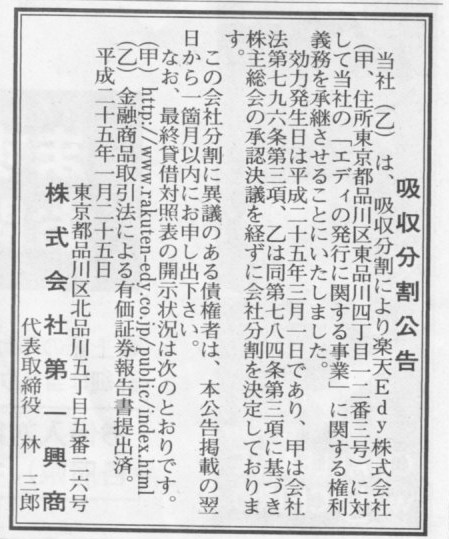 吸収分割公告
当社(乙)は、吸収分割により楽天Edy株式会社
(甲、住所東京都品川区東品川四丁目一二番三号)に対
して当社の「エディの発行に関する事業」に関する権利
義務を承継させることにいたしました。
効力発生日は平成二十五年三月一日であり、甲は会社
法第七九六条第三項、乙は同第七八四条第三項に基づき
株主総会の承認決議を経ずに会社分割を決定しておりま
す。
この会社分割に異議のある債権者は、本公告掲載の翌
日から一箇月以内にお申し出下さい。
なお、最終貸借対照表の開示状況は次のとおりです。
(甲)http://www.rakuten-edy.co.jp/public/index.html
(乙)金融商品取引法による有価証券報告書提出済。
平成二十五年一月二十五日
東京都品川区北品川五丁目五番二六号
株式会社第一興商
代表取締役 林 三郎